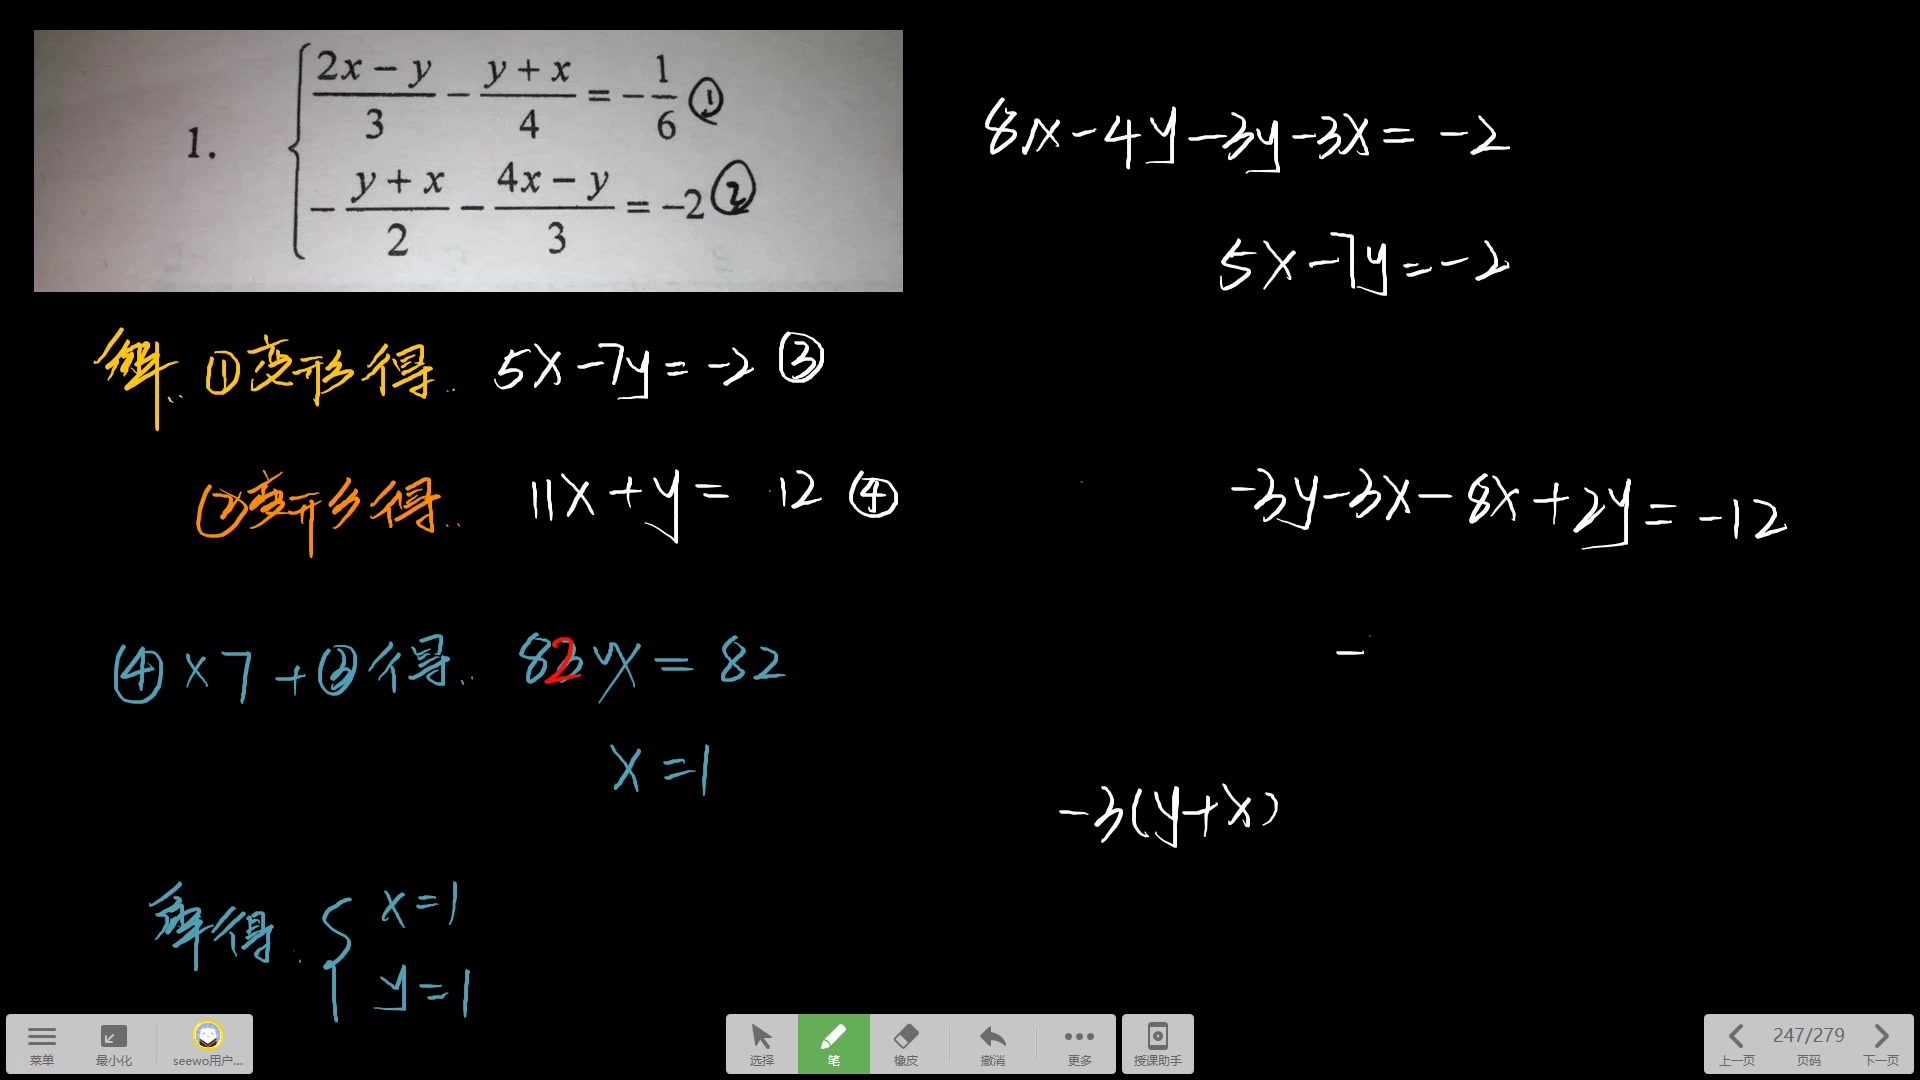 1.
(2x − y)/3 − (y + x)/4 = −1/6 ①
−(y + x)/2 − (4x − y)/3 = −2 ②
8x-4y-3y-3x=-2
5x-7y=-2
解:①变形得: 5x-7y=-2 ③
②变形得: 11x+y=12 ④
-3y-3x-8x+2y=-12
④×7+③得: 82x=82
-
x=1
-3(y+x)
解得: { x=1
y=1
菜单
最小化
seewo用户...
选择
笔
橡皮
撤消
更多
授课助手
上一页
247/279
页码
下一页